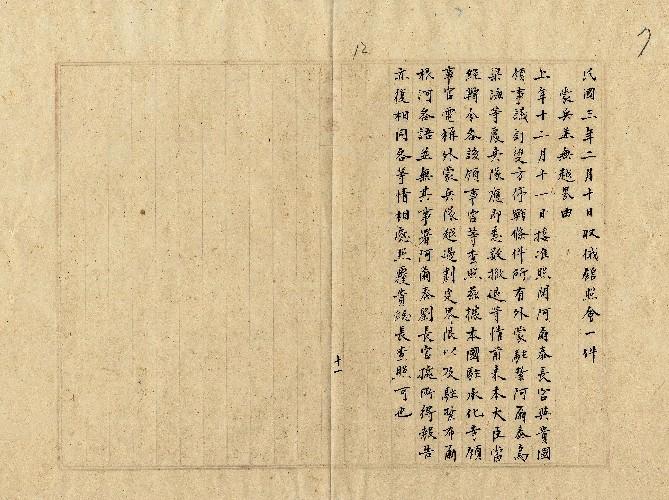 7
12
民國三年二月十日收俄館照會一件
蒙兵並無越界由
上年十二月十一日接准照開阿爾泰長官與貴國
領事議訂雙方停戰條件所有外蒙駐紮阿爾泰烏
梁海等處兵隊應即悉數撤退等情前來本大臣當
經轉令各該領事官等查照茲據本國駐承化寺領
事官電稱外蒙兵隊越過劃定界限以及駐紮布爾
根河各語並無其事署阿爾泰劉長官據所得報告
亦復相同各等情相應照覆貴總長查照可也
十一